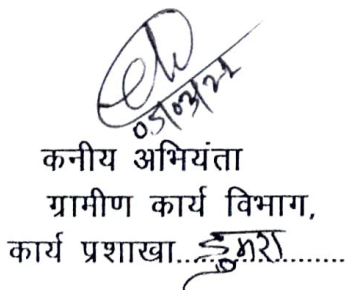 05/03/21
कनीय अभियंता
ग्रामीण कार्य विभाग,
कार्य प्रशाखा...डुमरा............